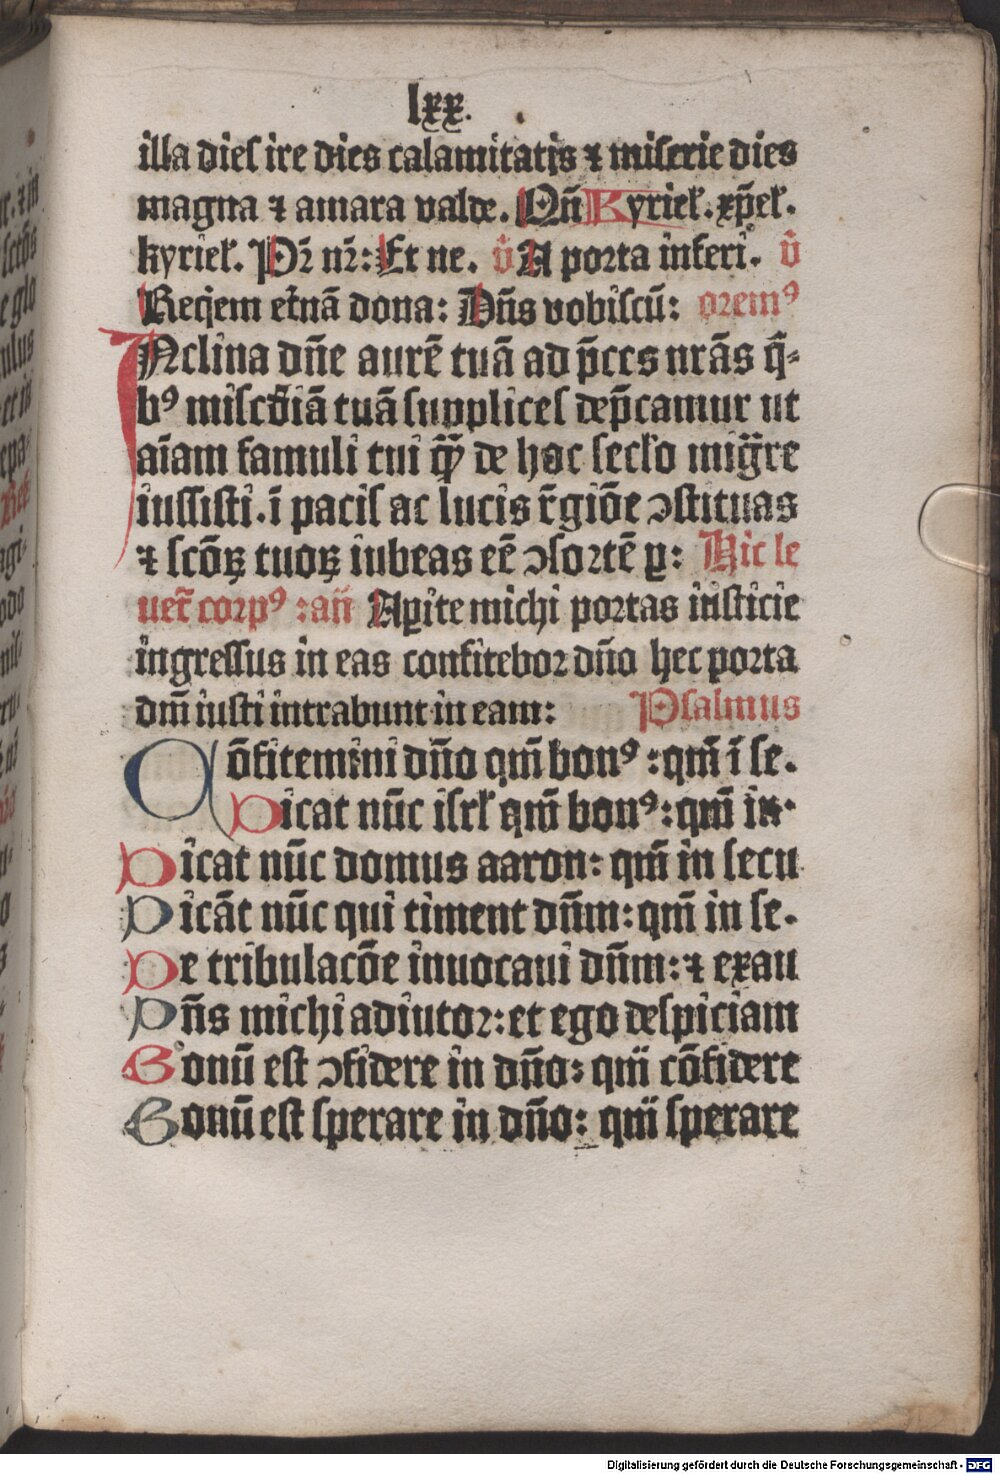 lxx.
illa dies ire dies calamitatis ⁊ miserie dies
magna ⁊ amara valde. Qn̄ Kyriel̛. xp̄el̛.
kyriel̛. Pr̄ nr̄: Et ne. v̄ A porta inferi. v̄
Reqiem et̛nā dona: Dn̄s vobiscū: oremꝰ
INclina dn̄e aurē tuā ad p̄ces nrās q̄-
bꝰ misc̄diā tuā supplices dep̄camur ut
aīam famuli tui q̄ꝫ de hoc sec̛lo mig̃re
iussisti. ī pacis ac lucis r̄giōe ꝯstituas
⁊ scōꝝ tuoꝝ iubeas eē ꝯsortē ꝑ: Hic le
uet̄ corpꝰ : an̄ Aꝑite michi portas iusticie
ingressus in eas confitebor dn̄o hec porta
dn̄i iusti intrabunt in eam: Psalmus
Cōfitemini dn̄o qm̄ bonꝰ : qm̄ ī se.
Dicat nūc isrl̛ qm̄ bonꝰ: qm̄ in.
Dicat nūc domus aaron: qm̄ in secu
Dicāt nūc qui timent dn̄m: qm̄ in se.
De tribulacōe inuocaui dn̄m: ⁊ exau
Dn̄s michi adiutor: et ego despiciam
Bonū est ꝯfidere in dn̄o: qm̄ cōfidere
Bonū est sperare in dn̄o: qm̄ sperare
Digitalisierung gefördert durch die Deutsche Forschungsgemeinschaft - DFG